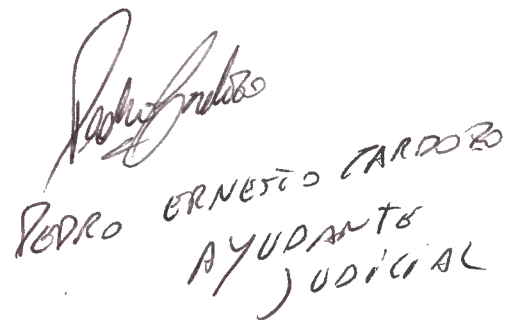 Pedro Cardozo
PEDRO ERNESTO CARDOZO
AYUDANTE
JUDICIAL